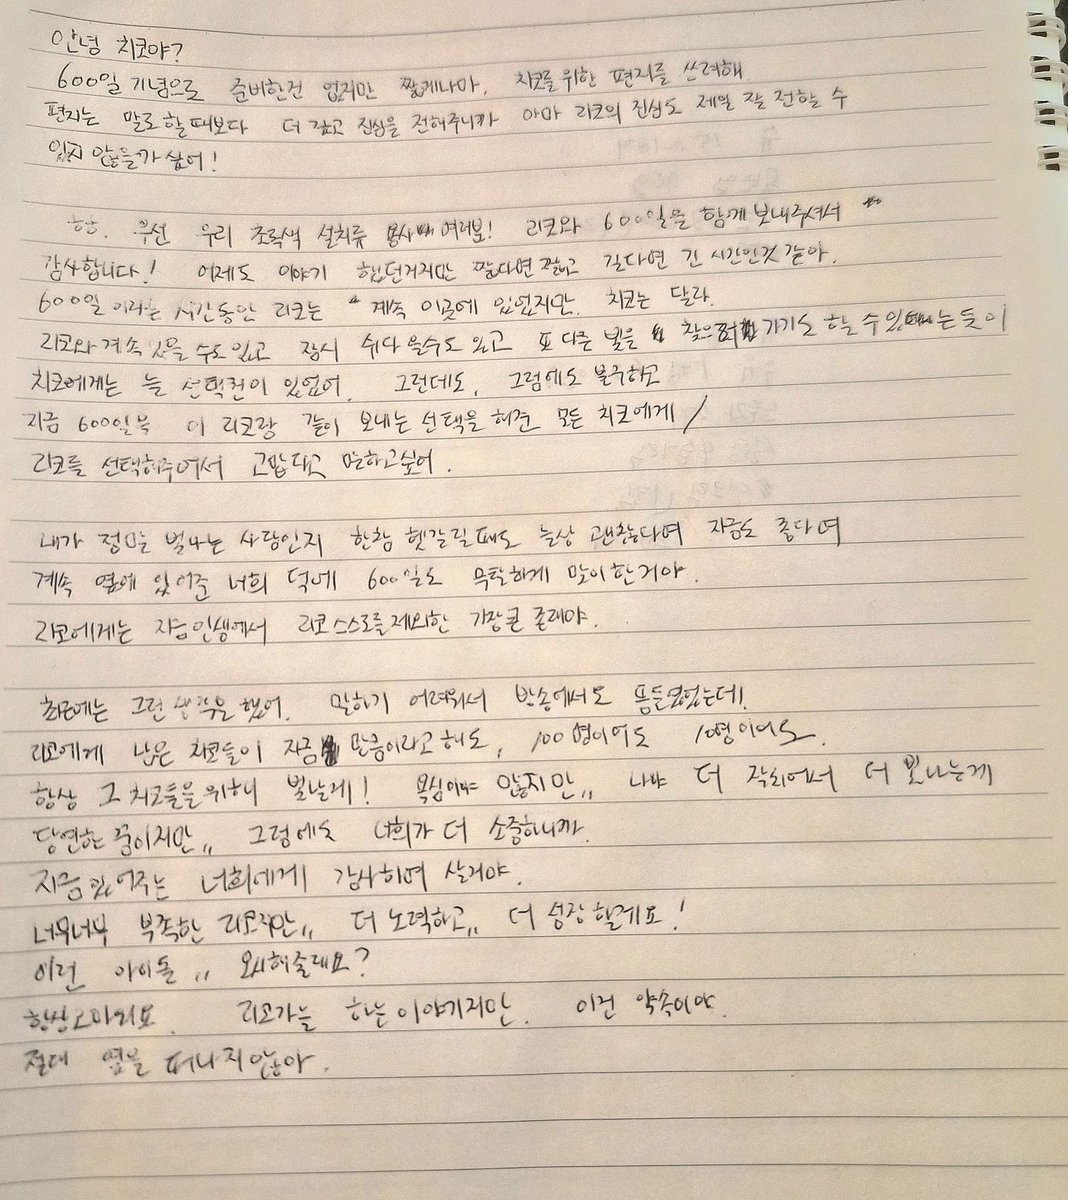 안녕 치코야?
600일 기념으로 준비한건 없지만 짧게나마. 치코를 위한 편지를 쓰려해
편지는 말로 할때보다 더 깊고 진심을 전해주니까 아마 리코의 진심도 제일 잘 전할 수
있지 않을까 싶어!
핫. 우선 우리 초록색 설치류 용사 여러분! 리코와 600일을 함께 보내주셔서
감사합니다! 어제도 이야기 했던거지만 짧다면 짧고 길다면 긴 시간인것 같아.
600일 이라는 시간동안 리코는 계속 이곳에 있었지만. 치코는 달라.
리코와 계속 있을 수도 있고 잠시 쉬다 올수도 있고 또 다른 빛을 찾으러 가기도 할 수 있는 듯이
치코에게는 늘 선택권이 있었어. 그런데도, 그럼에도 불구하고
지금 600일을 이 리코랑 같이 보내는 선택을 해준 모든 치코에게
리코를 선택해주어서 고맙다고 말하고싶어.
내가 정말 빛나는 사람인지 한참 헷갈릴때도 늘상 괜찮다며 지금도 좋다며
계속 옆에 있어준 너희 덕에 600일도 무탁하게 맞이한거야.
리코에게는 지금 인생에서 리코 스스로를 제외한 가장 큰 존재야.
최근에는 그런 생각을 했어. 말하기 어려워서 방송에서도 뜸들였었는데!
리코에게 남은 치코들이 지금 만큼이라고 해도, 100명이어도 10명이어도.
항상 그 치코들을위해 빛날게! 욕심이야 많지만,, 나야 더 커져서 더 빛나는게
당연한 꿈이지만,, 그럼에도 너희가 더 소중하니까.
지금 있어주는 너희에게 감사하며 살거야.
너무너무 부족한 리코지만,, 더 노력하고,, 더 성장할게요!
이런 아이돌,, 해줄래요?
항상 고마워요. 리코가 늘 하는 이야기지만. 이건 약속이야.
절대 옆을 떠나지 않아.